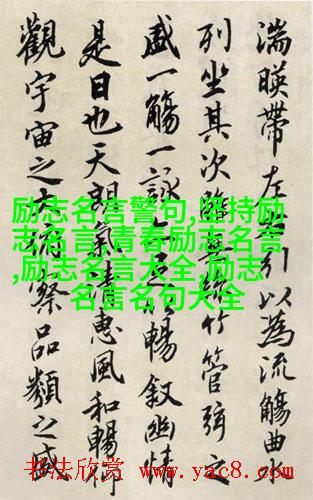 湍暎帶左右引以為流觴曲水
列坐其次雖無絲竹管弦之
盛一觴一詠亦足以暢敘幽情
是日也天朗氣清惠風和暢仰
觀宇宙之大俯察品類之盛
励志名言警句,坚持励
志名言,青春励志名言
,励志名言大全,励志
名言名句大全
书法欣赏 www.yac8.com